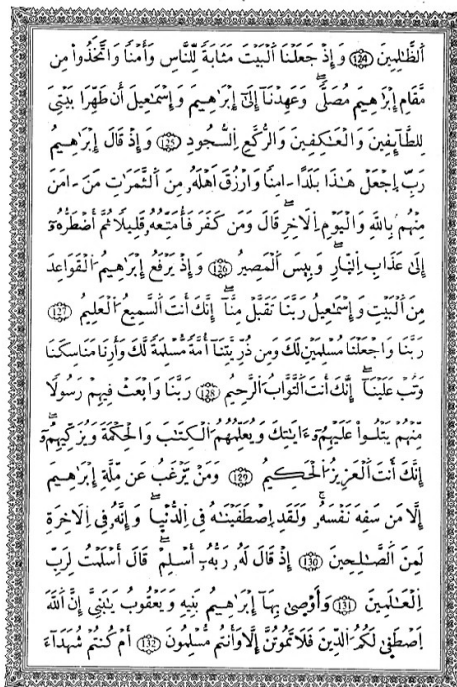 اَلظَّالِمِينَ 124 وَإِذْ جَعَلْنَا اَلْبَيْتَ مَثَابَةً لِّلنَّاسِ وَأَمْنًا وَاتَّخَذُوا مِن
مَّقَامِ إِبْرَاهِيمَ مُصَلًّى وَعَهِدْنَا إِلَىٰ إِبْرَاهِيمَ وَإِسْمَاعِيلَ أَن طَهِّرَا بَيْتِيَ
لِلطَّآئِفِينَ وَالْعَـٰكِفِينَ وَالرُّكَّعِ اِلسُّجُودِ 125 وَإِذْ قَالَ إِبْرَاهِيمُ
رَبِّ اِجْعَلْ هَـٰذَا بَلَدًا ـ اٰمِنًا وَارْزُقَ اَهْلَهُ مِنَ اَلثَّمَرَاتِ مَنَ ـ اٰمَنَ
مِنْهُم بِاللَّهِ وَالْيَوْمِ اِلَاخِرِ قَالَ وَمَن كَفَرَ فَأُمَتِّعُهُ قَلِيلًا ثُمَّ أَضْطَرُّهُۥٓ
إِلَىٰ عَذَابِ اِلنّٖارِ وَبِيسَ اَلْمَصِيرُ 126 وَإِذْ يَرْفَعُ إِبْرَاهِيمُ اُلْقَوَاعِدَ
مِنَ اَلْبَيْتِ وَإِسْمَاعِيلُ رَبَّنَا تَقَبَّلْ مِنَّا إِنَّكَ أَنتَ اَلسَّمِيعُ اُلْعَلِيمُ 127
رَبَّنَا وَاجْعَلْنَا مُسْلِمَيْنِ لَكَ وَمِن ذُرِّيَّتِنَا أُمَّةً مُّسْلِمَةً لَّكَ وَأَرِنَا مَنَاسِكَنَا
وَتُبْ عَلَيْنَا إِنَّكَ أَنتَ اَلتَّوَّابُ اُلرَّحِيمُ 128 رَبَّنَا وَابْعَثْ فِيهِمْ رَسُولًا
مِّنْهُمْ يَتْلُوا عَلَيْهِمُۥٓ ءَايَـٰتِكَ وَيُعَلِّمُهُمُ اُلْكِتَـٰبَ وَالْحِكْمَةَ وَيُزَكِّيهِمُۥٓ
إِنَّكَ أَنتَ اَلْعَزِيزُ اُلْحَكِيمُ 129 وَمَنْ يَّرْغَبُ عَن مِّلَّةِ إِبْرَاهِيمَ
إِلَّا مَن سَفِهَ نَفْسَهُ وَلَقَدِ اِصْطَفَيْنَـٰهُ فِي اِلدُّنْيَا وَإِنَّهُ فِي اِلَاخِرَةِ
لَمِنَ اَلصَّـٰلِحِينَ 130 إِذْ قَالَ لَهُ رَبُّهُۥٓ أَسْلِمْ قَالَ أَسْلَمْتُ لِرَبِّ
اِلْعَـٰلَمِينَ 131 وَأَوْصَىٰ بِهَآ إِبْرَاهِيمُ بَنِيهِ وَيَعْقُوبُ يَـٰبَنِيَّ إِنَّ اَللَّهَ
اَصْطَفَىٰ لَكُمُ اُلدِّينَ فَلَا تَمُوتُنَّ إِلَّا وَأَنتُم مُّسْلِمُونَ 132 أَمْ كُنتُمْ شُهَدَآءَ